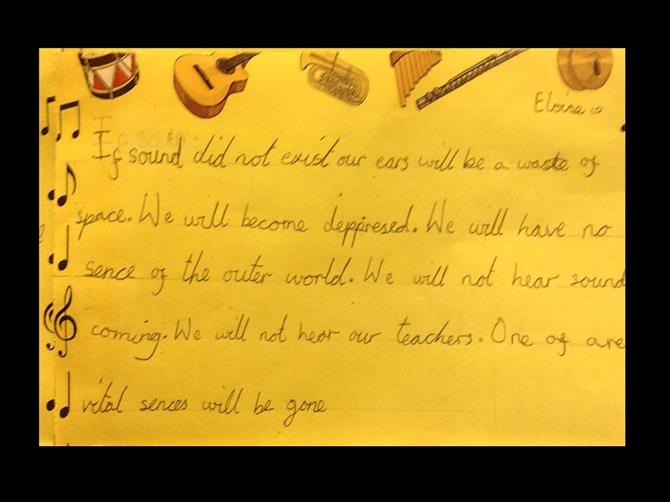 Eloise
If sound did not exist our ears will be a waste of
space. We will become deppresed. We will have no
sence of the outer world. We will not hear sound
coming. We will not hear our teachers. One of are
vital sences will be gone